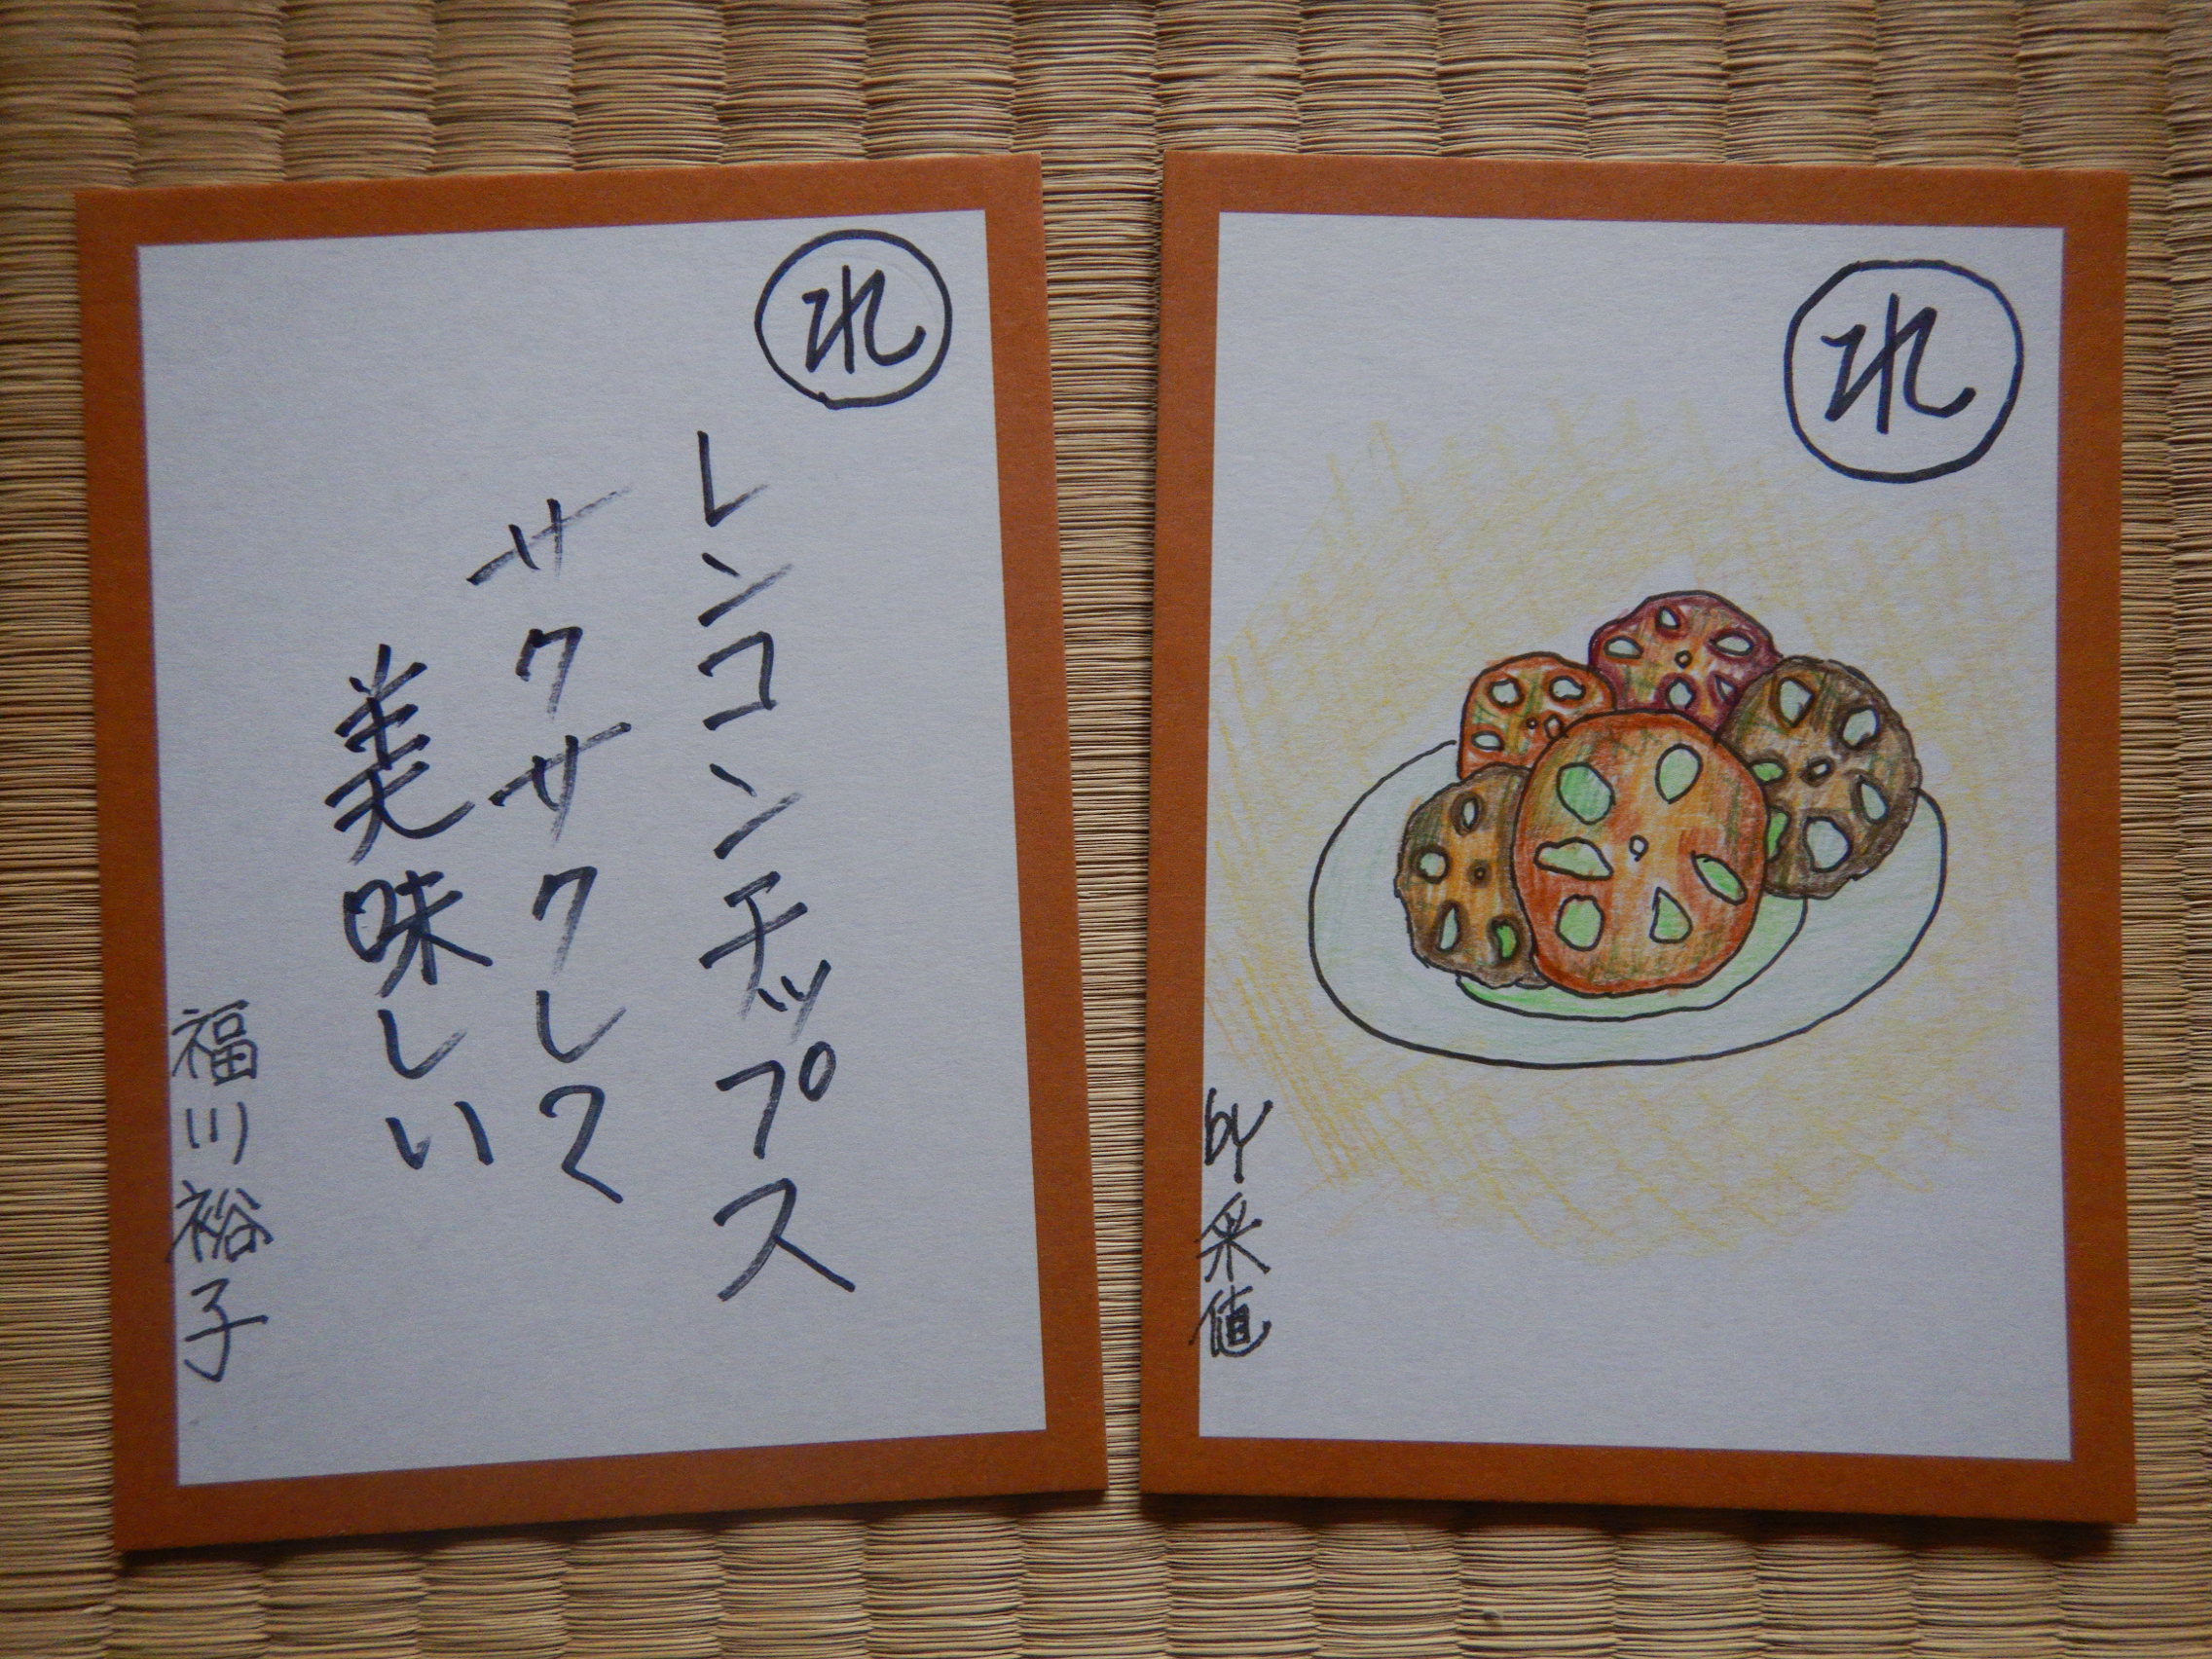 れ
レンコンチップス
サクサクして
美味しい
福川裕子
れ
by 采値